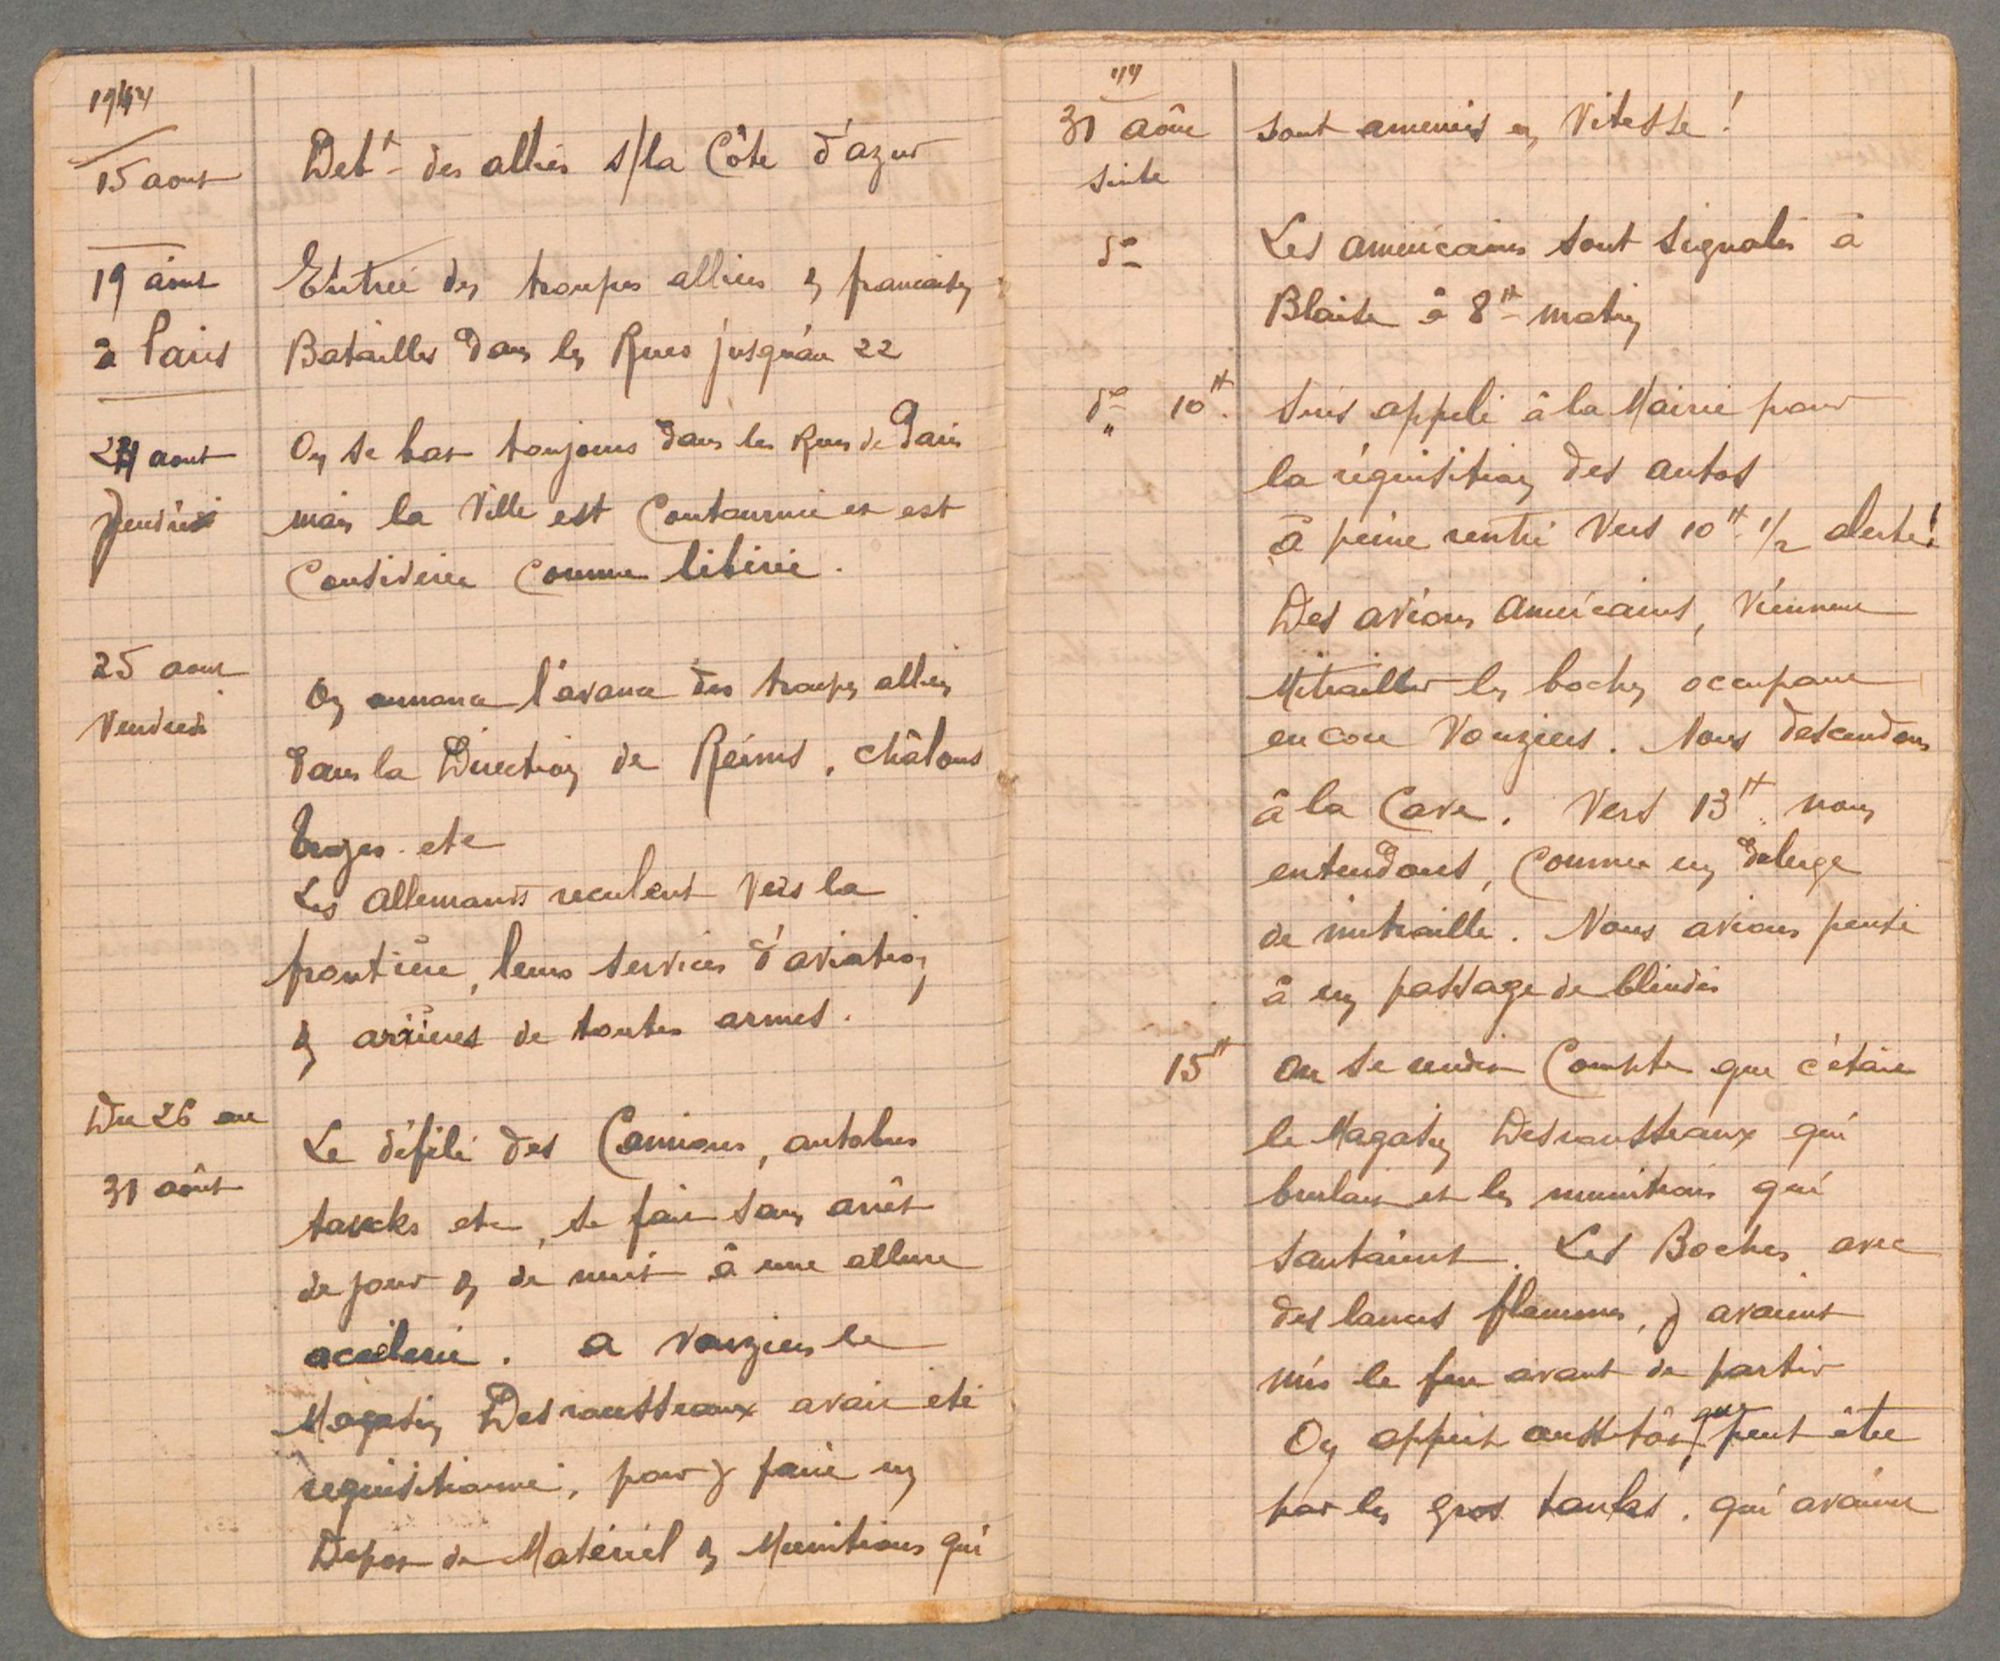 1944
15 aout Debt des alliés s/la Côte d'azur
19 aout Entrée des troupes alliées & françaises
à Paris Batailles dans les Rues jusqu'au 22
24 aout On se bat toujours dans les Rues de Paris
mais la Ville est Contournée et est
Considérée comme libérée.
25 aout On annonce l'avance des troupes alliées
Vendredi dans la Direction de Reims, châlons
troyes etc
Les allemands reculent vers la
frontière, leurs services d'aviation
& arrières de toutes armes.
Du 26 au Le défilé des Camions, autobus
31 août tancks etc, se fait sans arrêt
de jour & de nuit à une allure
accélérée. a Vouziers le
Magasin Desrousseaux avait été
requisitionné, pour y faire un
Depot de Matériel & Munitions qui
44
31 aôut sont amenés en Vitesse!
suite
do Les américains sont signalés à
Blaise à 8H matin
do 10H. Suis appelé à la Mairie pour
" la réquisition des autos
à peine rentré Vers 10H 1/2 alerte!
Des avions américains, viennent
Mitrailler les boches occupant
encore Vouziers. Nous descendons
à la Cave. Vers 13H nous
entendons, Comme un deluge
de mitraille. Nous avions pensé
à un passage de blindés
15H on se rendit Compte que c'était
le Magasin Desrousseaux qui
brulait et les munitions qui
sautaient. Les Boches avec
des lances flammes, y avaient
mis le feu avant de partir
On apprit aussitôt que peut être
par les gros tanks, qui avaient